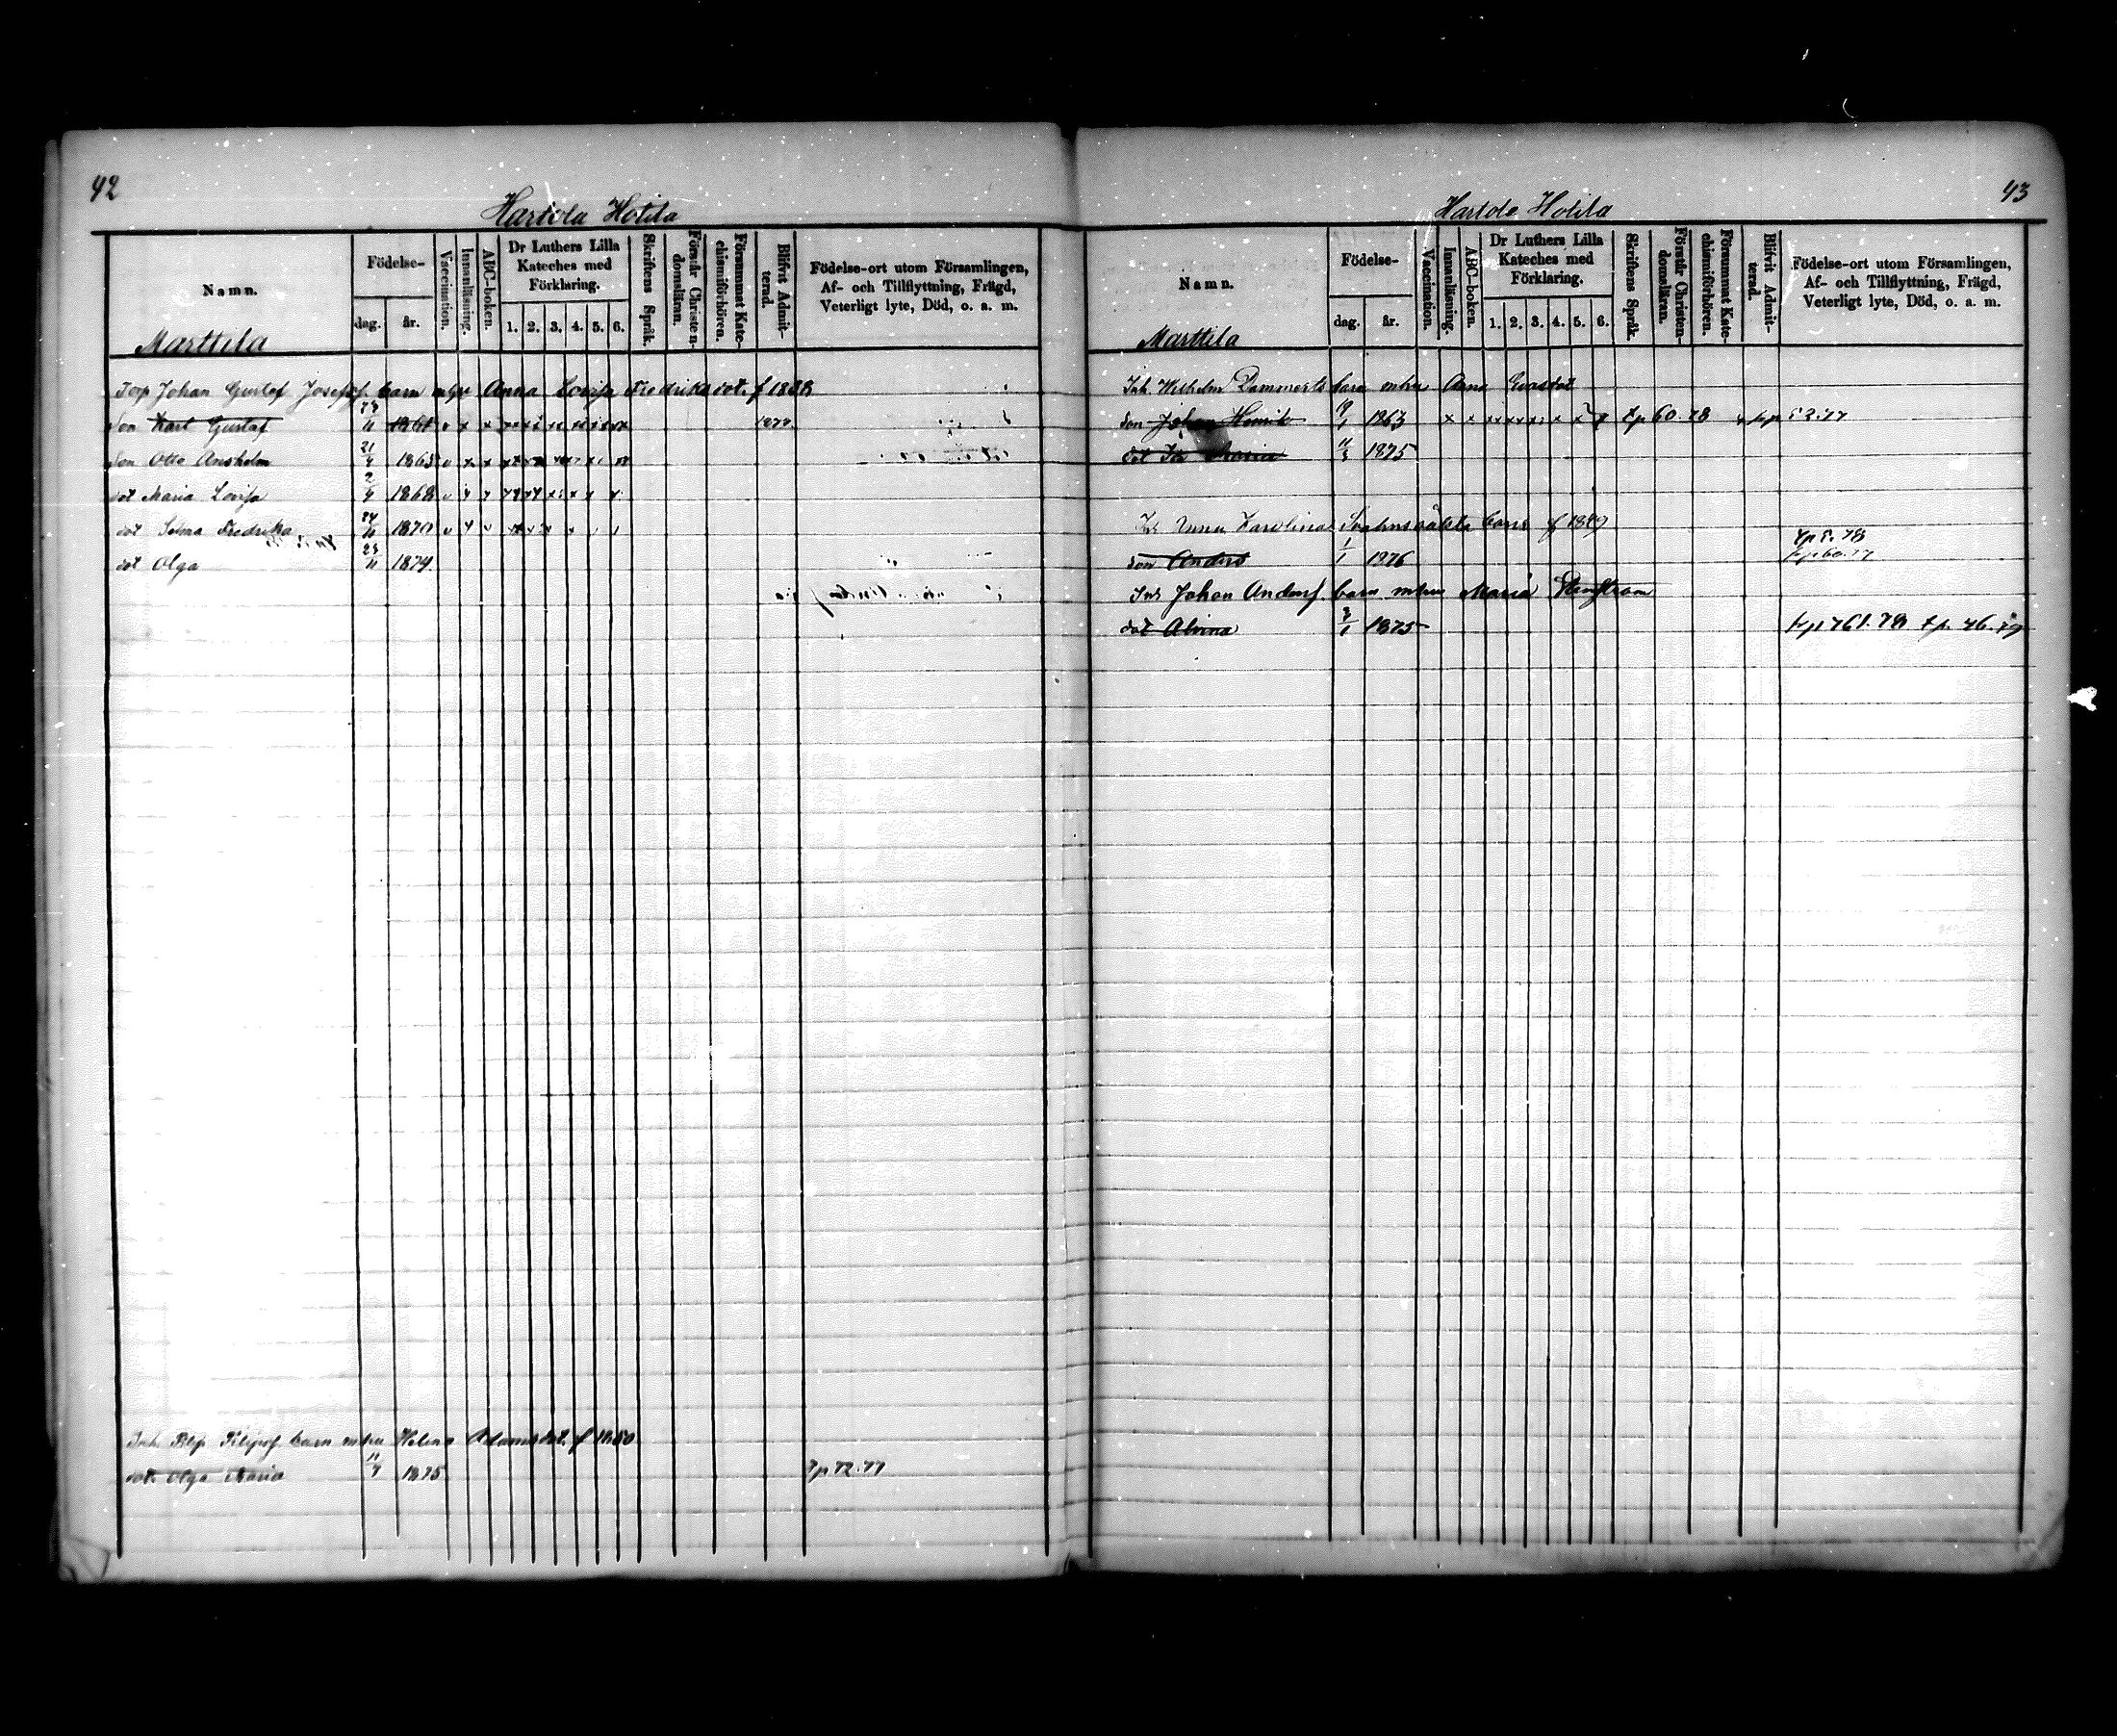 42
Hartola Hotila
Namn.
Födelse-
dag.
år.
Vaccination.
Innanläsning.
ABC-boken.
Dr Luthers Lilla Kateches med Förklaring.
1. 2. 3. 4. 5. 6.
Skriftens Språk.
Förstår Christendomsläran.
Försummat Katechismiförhören.
Blifvit Admitterad.
Födelse-ort utom Församlingen,
Af- och Tillflyttning, Frägd,
Veterligt lyte, Död, o. a. m.
Marttila
Johan Gustaf Josefsf. barn m hu Anna Lovisa Fredriksdot. f 1838
Son Karl Gustaf 11 1861 1877
Son Otto Ansholm 21/4 1865
dot Maria Lovisa 2/4 1868
dot Selma Fredrika 24/11 1870
dot Olga 23/11 1874
barn m hu Helena Adamsdot. f 1850
dot. Olga Maria 11/7 1875 72.77
43
Hartola Hotila
Namn.
Födelse-
dag.
år.
Vaccination.
Innanläsning.
ABC-boken.
Dr Luthers Lilla Kateches med Förklaring.
1. 2. 3. 4. 5. 6.
Skriftens Språk.
Förstår Christendomsläran.
Försummat Katechismiförhören.
Blifvit Admitterad.
Födelse-ort utom Församlingen,
Af- och Tillflyttning, Frägd,
Veterligt lyte, Död, o. a. m.
Marttila
Wilhelm barn m hu Anna
Son Johan Henrik 19/1 1863 60.78
dot Ida Maria 1875
Anna Karolina barn f 1849
78
son Anders 1/1 1876 60.77
Johan Andersf. barn m hu Maria
dot Alvina 1875 761.78 46.79